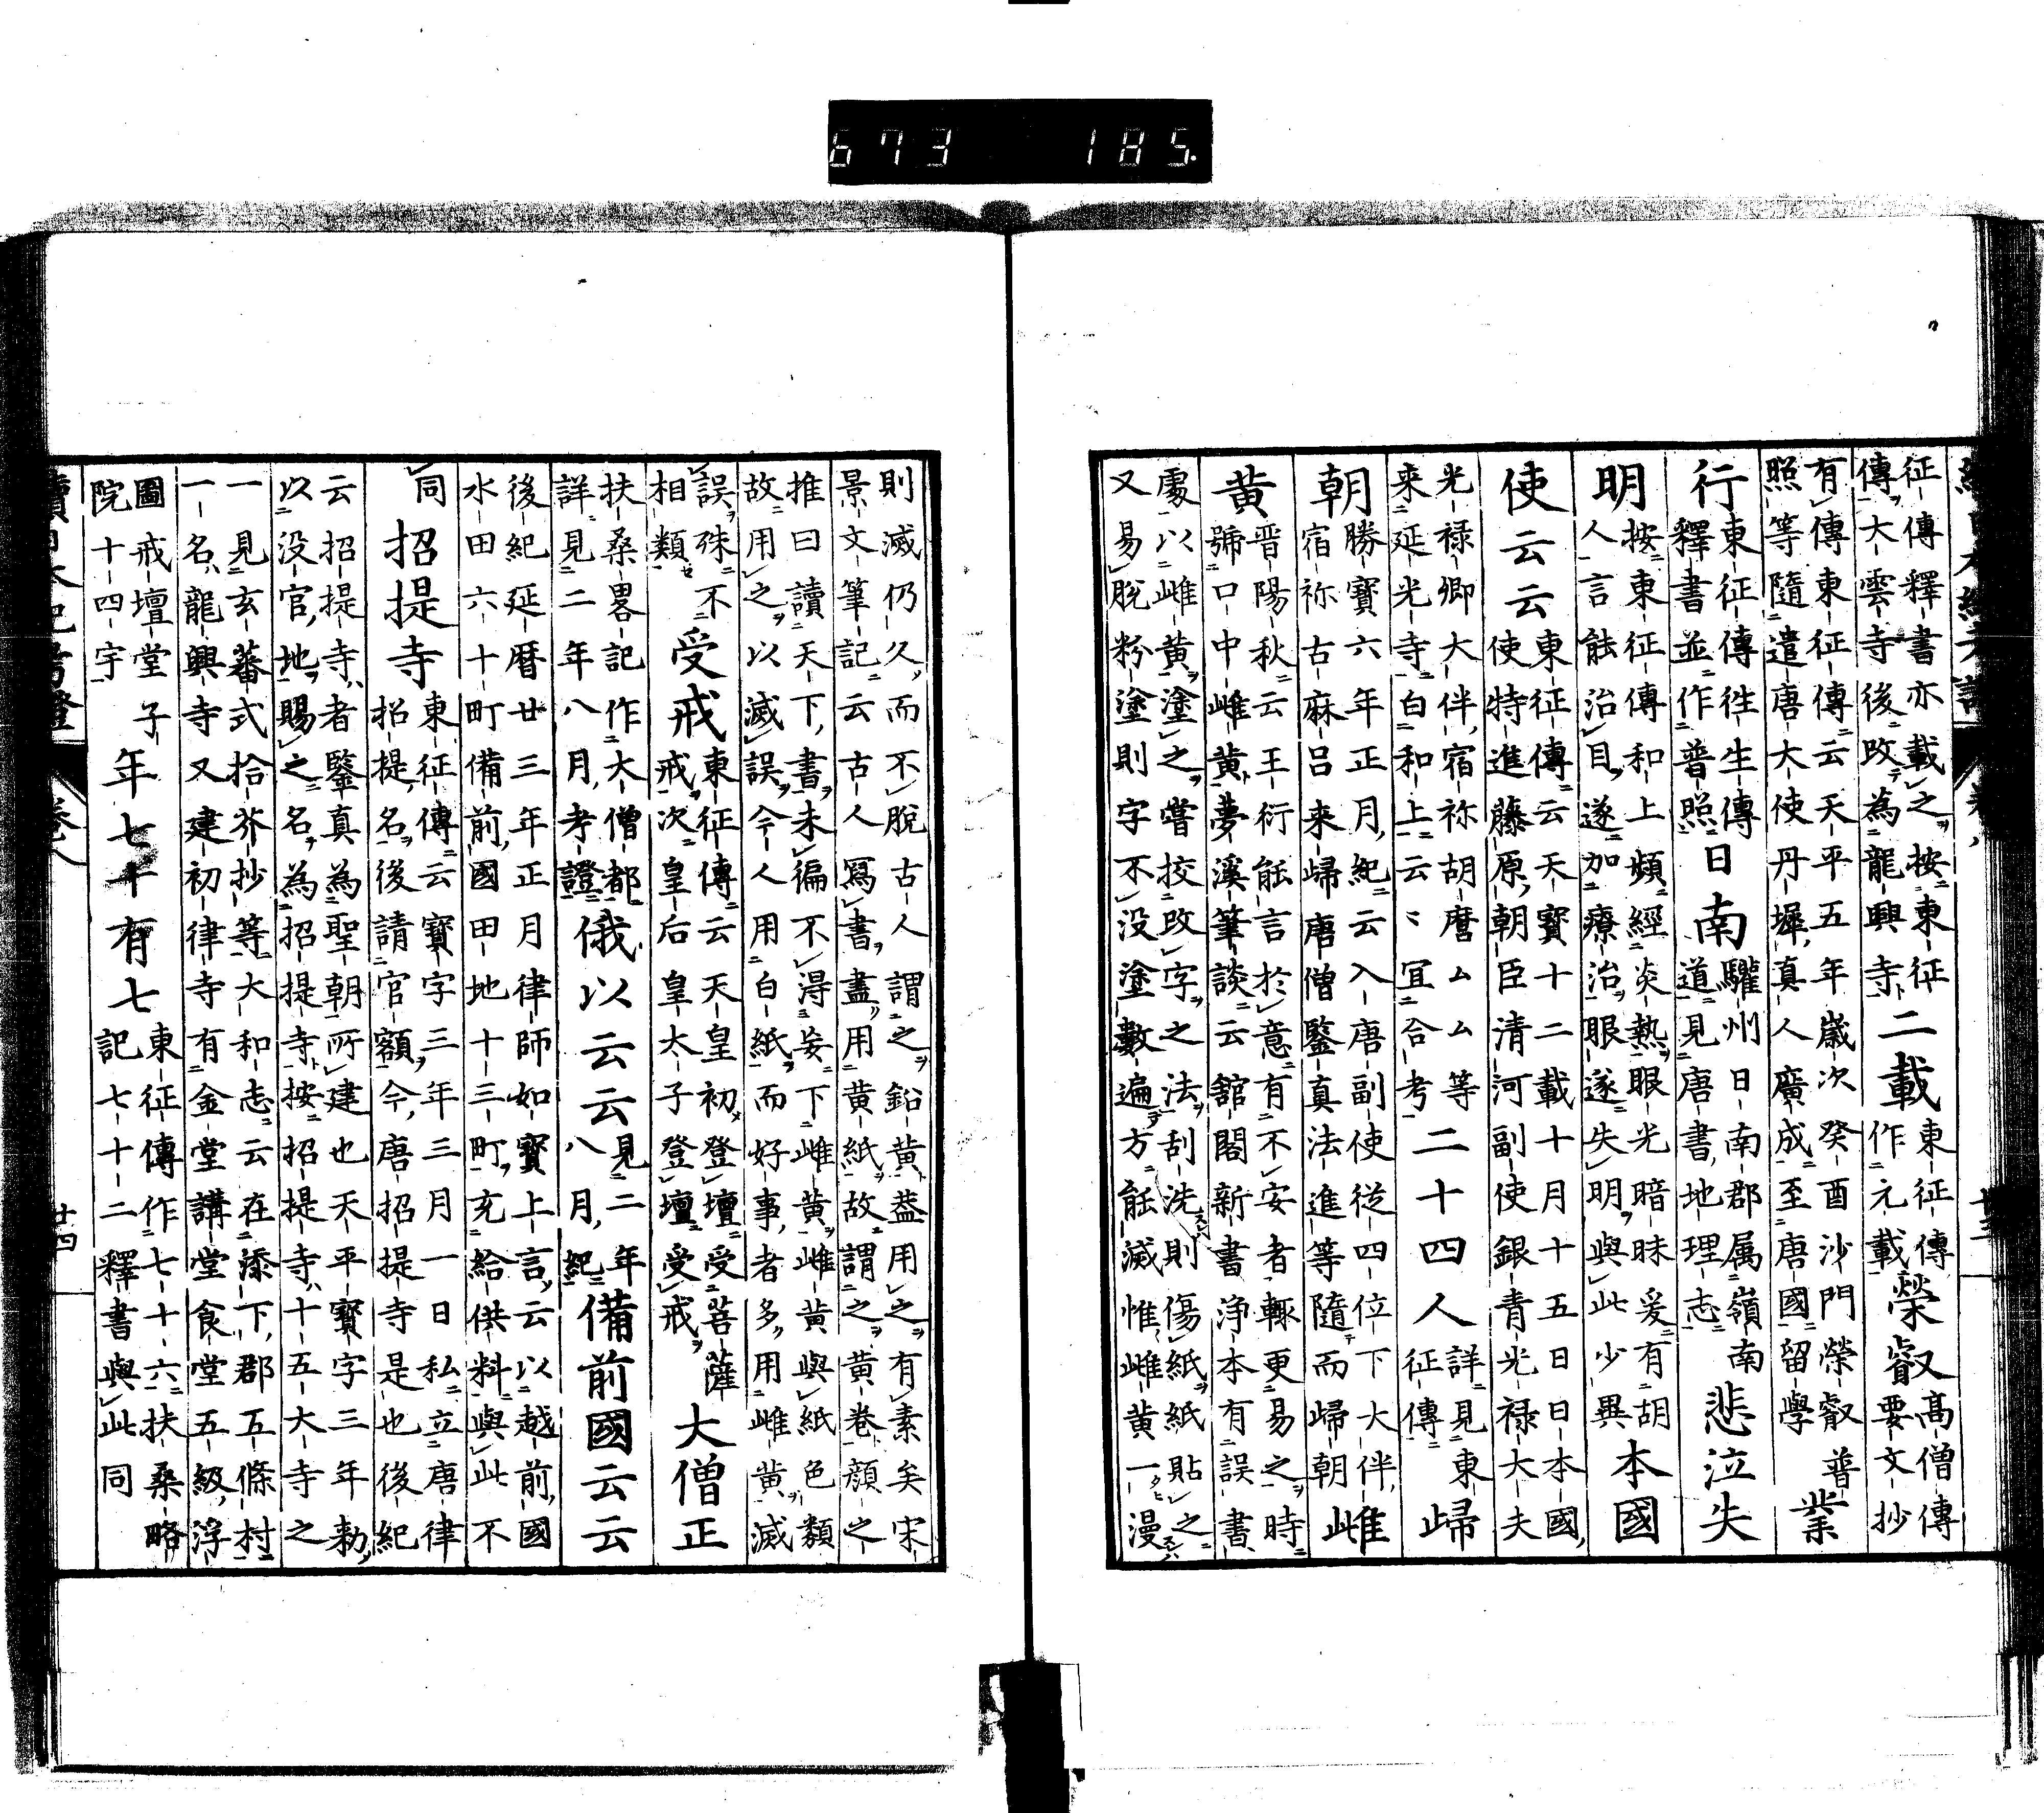 673 185.
征傳釋書亦載之按東征
傳大雲寺後改為龍興寺
二載
東征傳
作元載
榮叡
又高僧傳
要文抄
有傳東征傳云天平五年歳次癸酉沙門榮叡普
照等隨遣唐大使丹墀真人廣成至唐國留學
業
行
東征傳徃生傳
釋書並作普照
日南
驩州日南郡属嶺南
道見唐書地理志
悲泣失
明
按東征傳和上頻經炎熱眼光暗昧爰有胡
人言能治目遂加療治眼遂失明與此少異
本國
使云云
東征傳云天寶十二載十月十五日日本國
使特進藤原朝臣清河副使銀青光禄大夫
光禄卿大伴宿祢胡麿ムム等
来延光寺白和上云〻冝合考
二十四人
詳見東
征傳
歸
朝
勝寶六年正月紀云入唐副使従四位下大伴
宿祢古麻呂来歸唐僧鑒真法進等隨而歸朝
雌
黄
晋陽秋云王衍能言於意有不安者輙更易之時
號口中雌黄夢溪筆談云舘閣新書浄本有誤書
處以雌黄塗之嘗挍改字之法刮洗則傷紙紙貼之
又易脱粉塗則字不没塗數遍方能滅惟雌黄一漫
則滅仍久而不脱古人謂之鉛黄盖用之有素矣宋
景文筆記云古人寫書盡用黄紙故謂之黄巻顔之
推曰讀天下書未徧不得妄下雌黄雌黄與紙色類
故用之以滅誤今人用白紙而好事者多用雌黄滅
誤殊不
相類
受戒
東征傳云天皇初登壇受菩薩
戒次皇后皇太子登壇受戒
大僧正
扶桑畧記作大僧都
詳見二年八月考證
俄以云云
見二年
八月紀
備前國云云
後紀延暦廿三年正月律師如寶上言云以越前國
水田六十町備前國田地十三町充給供料與此不
同
招提寺
東征傳云寶字三年三月一日私立唐律
招提名後請官額今唐招提寺是也後紀
云招提寺者鑒真為聖朝所建也天平寶字三年勅
以没官地賜之名為招提寺按招提寺十五大寺之
一見玄蕃式拾芥抄等大和志云在添下郡五條村
一名龍興寺又建初律寺有金堂講堂食堂五級浮
圖戒壇堂子
院十四宇
年七十有七
東征傳作七十六扶桑略
記七十二釋書與此同
廿四